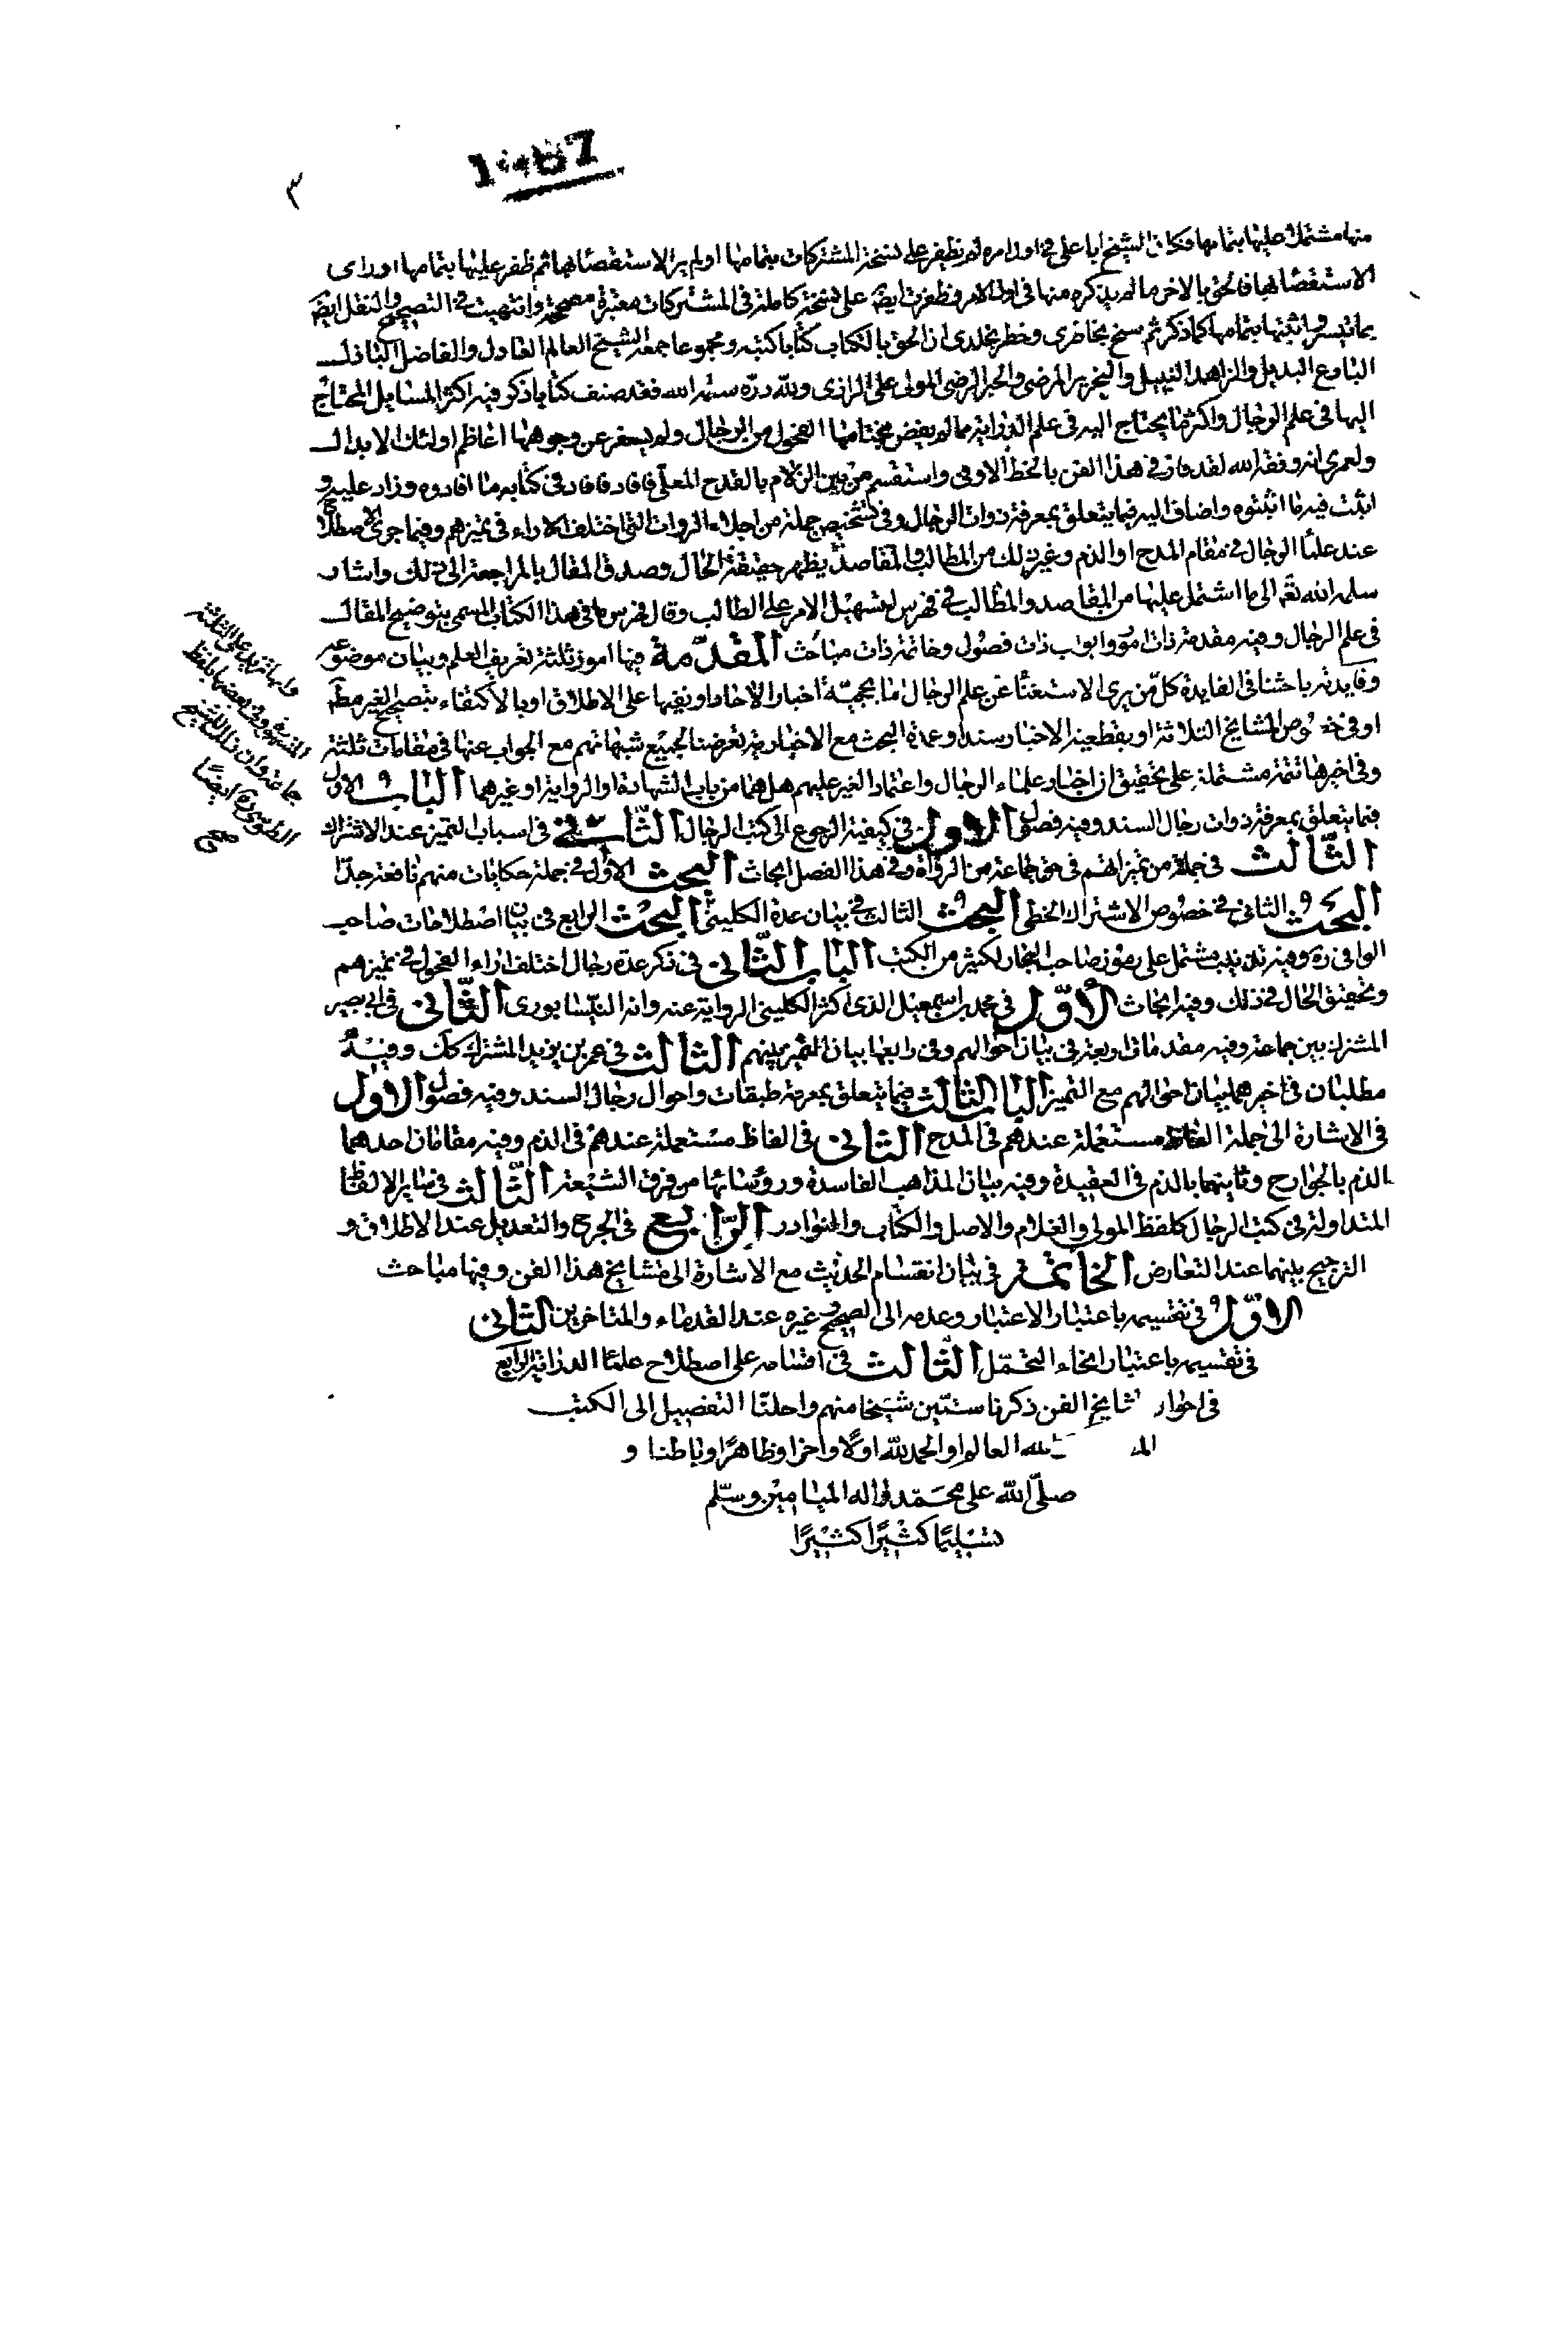 ٣
منها مشتملة عليها بتمامها فكان الشيخ ابا على فى اول امره لم يظفر على نسخة المشتركات بتمامها اولم ير الاستقصاء لها ثم ظفر عليها بتمامها او راى
الاستقصاء لها فالحق بالاخر ما لم يذكره منها فى اول الامر وظفرت ايضا على نسخة كاملة فى المشتركات معتبرة مصححة وانتهيت فى التصحيح والنقل ايضا
بما تيسر واثبتها بتمامها كما ذكر ثم سنح بخاطرى وخطر بخلدى ان الحق بالكتاب كتابا كتبه ومجموعا جمعه الشيخ العالم العادل والفاضل الباذل
البارع البديل والزاهد النبيل والنحرير المرضى والحبر الرضى المولى على الرازى ولله درّه سلمه الله فقد صنف كتابا ذكر فيه اكثر المسايل المحتاج
اليها فى علم الرجال واكثر ما يحتاج اليه فى علم الدراية مما لم يفض مختامها الفحول من الرجال ولم يسفر عن وجوهها اعاظم اولئك الابدال
ولعمرى انه وفقه الله لقد فاز فى هذا الفن بالحظ الاوفى واستقسم من بين الزلام بالقدح المعلّى فافاد فى كتابه ما افادوه وزاد عليه و
اثبت فيه ما اثبتوه واضاف اليه فيما يتعلق بمعرفة ذوات الرجال وفى تشخيص جملة من اجلاء الروات التى اختلف الاراء فى تميزهم وفيما جرى الاصطلاح
عند علماء الرجال فى مقام المدح او الذم وغير ذلك من المطالب والمقاصد يظهر حقيقة الحال وصدق المقال بالمراجعة الى ذلك واشار
سلمه الله تعالى الى ما اشتمل عليها من المقاصد والمطالب فى فهرس لتسهيل الامر على الطالب وقال فهرس ما فى هذا الكتاب المسمى بتوضيح المقال
فى علم الرجال وفيه مقدمة ذات امور وابواب ذات فصول وخاتمة ذات مباحث المقدّمة فيها امور ثلثة تعريف العلم وبيان موضوعه
وفايدته باحثنا فى الفايدة كل من يرى الاستغناء عن علم الرجال اما بحجيّة اخبار الاحاد او بقيها على الاطلاق او بالاكتفاء بتصحيح الغير مط
او فى خصوص المشايخ الثلاثة او بقطعية الاخبار سندا وعمدة البحث مع الاخبارية تعرضنا لجميع شبهاتهم مع الجواب عنها فى مقامات ثلثة
وفى اخرها تتمة مشتملة على تحقيق ان اخبار علماء الرجال واعتماد الغير عليهم هل هما من باب الشهادة او الرواية او غيرهما الباب الاول
فيما يتعلق بمعرفة ذوات رجال السند وفيه فصول الاول فى كيفية الرجوع الى كتب الرجال الثانى فى اسباب التميز عند الاشتراك
الثّالث فى جملة من تميزاتهم فى حق جماعة من الرواة وفى هذا الفصل ابحاث البحث الاول فى جملة حكايات منهم نافعة جدّا
البحث الثانى فى خصوص الاشتراك الخطى البحث الثالث فى بيان عدة الكلينى البحث الرابع فى بيان اصطلاحات صاحب
الوافى ره وفيه تذنيب مشتمل على رموز صاحب البحار لكثير من الكتب الباب الثّانى فى ذكر عدة رجال اختلف اراء الفحول فى تميزهم
وتحقيق الحال فى ذلك وفيه ابحاث الأوّل فى محمد بن اسمعيل الذى اكثر الكلينى الرواية عنه وانه النيسابورى الثّانى فى ابى بصير
المشترك بين جماعة وفيه مقدمة فى بيان احوالهم وفى رابعها بيان التميز بينهم الثالث فى عمر بن يزيد المشترك كك وفيه
مطلبان فى اخيرهما بيان احوالهم مع التميز الباب الثالث فيما يتعلق بمعرفة طبقات واحوال رجال السند وفيه فصول الاول
فى الاشارة الى جملة الفاظ مستعملة عندهم فى المدح الثانى فى الفاظ مستعملة عندهم فى الذم وفيه مقامان احدهما
الذم بالجوارح وثانيهما بالذم فى العقيدة وفيه بيان المذاهب الفاسدة ورؤسائها من فرق الشيعة الثّالث فى ساير الالفاظ
المتداولة فى كتب الرجال كلفظ المولى والغلام والاصل والكتاب والنوادر الرّابع فى الجرح والتعديل عند الاطلاق و
الترجيح بينهما عند التعارض الخاتمة فى بيان انقسام الحديث مع الاشارة الى مشايخ هذا الفن وفيها مباحث
الاوّل فى تقسيمه باعتبار الاعتبار وعدمه الى الصحيح وغيره عند القدماء والمتاخرين الثانى
فى تقسيمه باعتبار انحاء التحمّل الثّالث فى اقسامه على اصطلاح علماء الدراية الرابع
فى احوال مشايخ الفن ذكرنا ستّين شيخا منهم واحلنا التفصيل الى الكتب
الله العالم والحمد لله اوّلا واخرا وظاهرًا وباطنا و
صلّى الله على محمّد واله الميامين وسلّم
تسليمًا كثيرًا كثيرًا
وانها تزيد على الثلثة
المشهورة وفى بعضها بلفظ
جماعة وان ذلك للشيخ
الطوسى ره ايضًا
صح